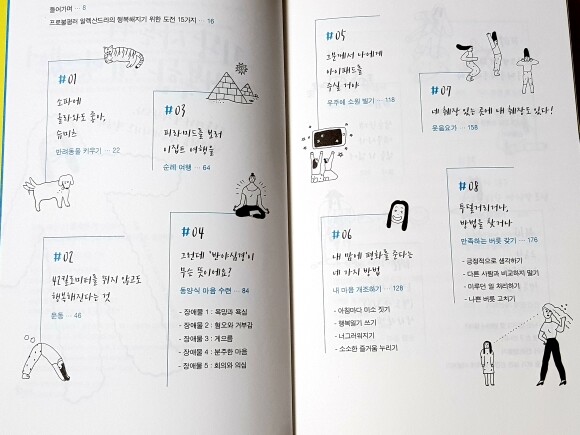 들어가며 ··· 8
프로불평러 알렉산드라의 행복해지기 위한 도전 15가지 ··· 16
#01
소파에
올라와도 좋아,
슈미츠
반려동물 키우기 ··· 22
#02
42킬로미터를 뛰지 않고도
행복해진다는 것
운동 ··· 46
#03
피라미드를 보러
이집트 여행을
순례 여행 ··· 64
#04
그런데 '반야심경'이
무슨 뜻이에요?
동양식 마음 수련 ··· 84
- 장애물 1 : 욕망과 욕심
- 장애물 2 : 혐오와 거부감
- 장애물 3 : 게으름
- 장애물 4 : 분주한 마음
- 장애물 5 : 회의와 의심
#05
그분께서 나에게
아이패드를
주실 거야
우주에 소원 빌기 ··· 118
#06
내 맘에 평화를 준다는
네 가지 방법
내 마음 개조하기 ··· 128
- 아침마다 미소 짓기
- 행복일기 쓰기
- 너그러워지기
- 소소한 즐거움 누리기
#07
네 췌장 있는 곳에 내 췌장도 있다!
웃음요가 ··· 158
#08
투덜거리거나,
방법을 찾거나
만족하는 버릇 갖기 ··· 176
- 긍정적으로 생각하기
- 다른 사람과 비교하지 말기
- 미루던 일 처리하기
- 나쁜 버릇 고치기